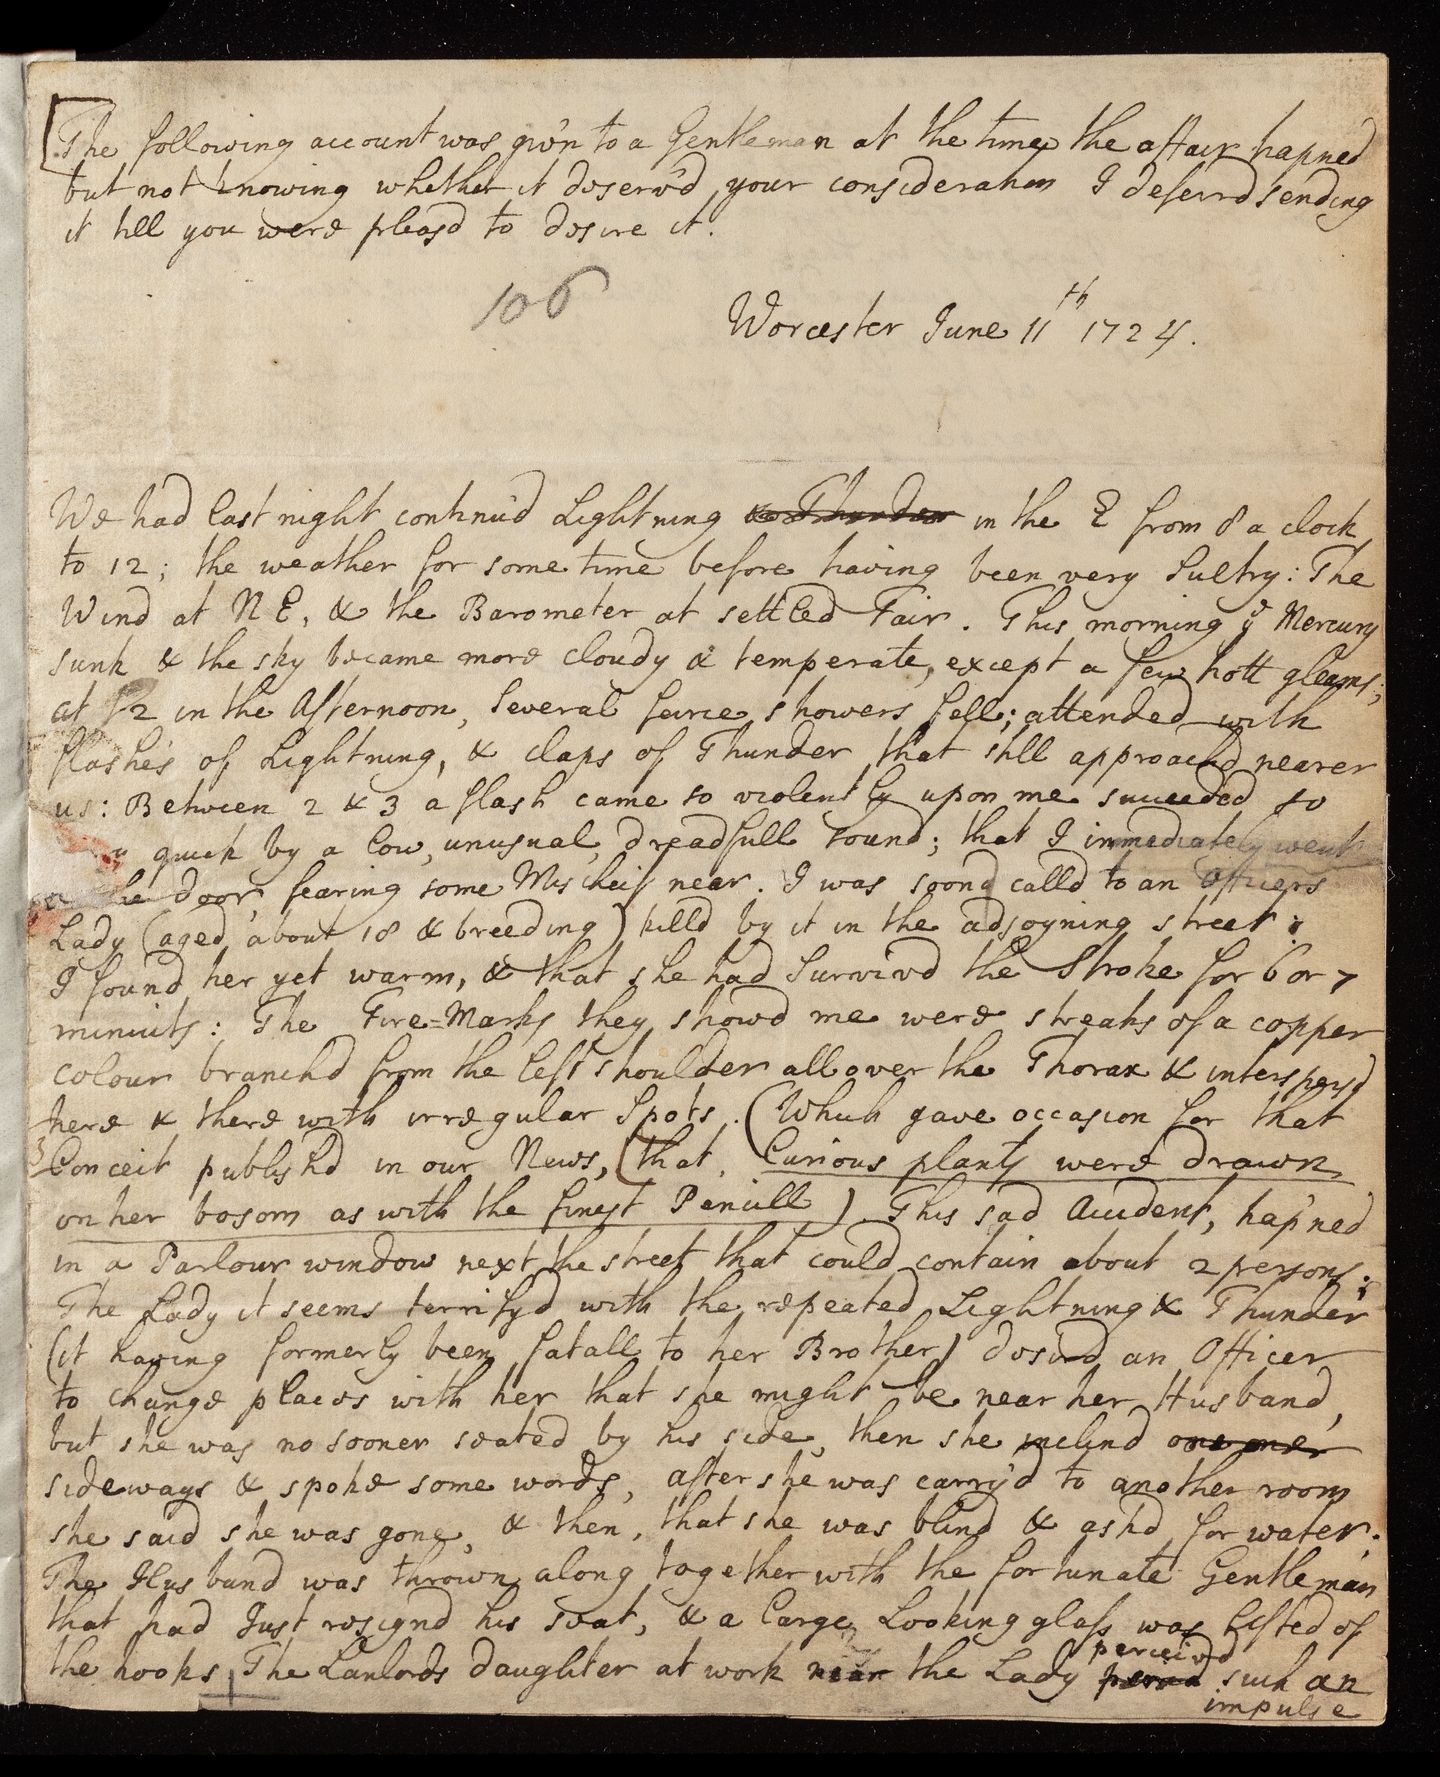 [The following account was giv'n to a Gentleman at the time the affair hapned
but not knowing whether it deserv'd your consideration I deferrd sending
it till you were pleasd to desire it.
106
Worcester June 11th 1724.
We had last night continu'd Lightning & Thunder in the E from 8 a clock
to 12; the weather for some time before having been very Sultry: The
Wind at NE, & the Barometer at settled Fair. This morning ye Mercury
sunk & the sky became more cloudy & temperate, except a few hott gleams;
at 1/2 in the Afternoon, Several feirce showers fell; attended with
flashes of Lightning, & claps of Thunder that still approachd nearer
us: Between 2 & 3 a flash came so violently upon me succeeded so
quick by a low, unusual, dreadfull sound; that I immediately went
the door, fearing some Mischeif near. I was soon calld to an Officers
Lady (aged about 18 & breeding) killd by it in the adjoyning street:
I found her yet warm, & that she had Surviv'd the Stroke for 6 or 7
minuits: The Fire=Marks they showd me were streaks of a copper
colour branchd from the left shoulder all over the Thorax & interspersd
here & there with irregular Spots. (Which gave occasion for that
Conceit publishd in our News, (that, Curious plants were drawn
on her bosom as with the finest Pencill) This sad Accident, hap'ned
in a Parlour window next the street that could contain about 2 persons:
The Lady it seems terrifyd with the repeated Lightning & Thunder
(it having formerly been fatall to her Brother) desird an Officer
to change places with her that she might be near her Husband,
but she was no sooner seated by his side, then she inclind
sideways & spoke some words, after she was carry'd to another room
she said she was gone, & then, that she was blind & askd for water.
The Husband was thrown along together with the fortunate Gentleman
that had Just resignd his seat, & a large Looking glass was lifted of
the hooks The Lanlords daughter at work near the Lady perceivd such an
impulse